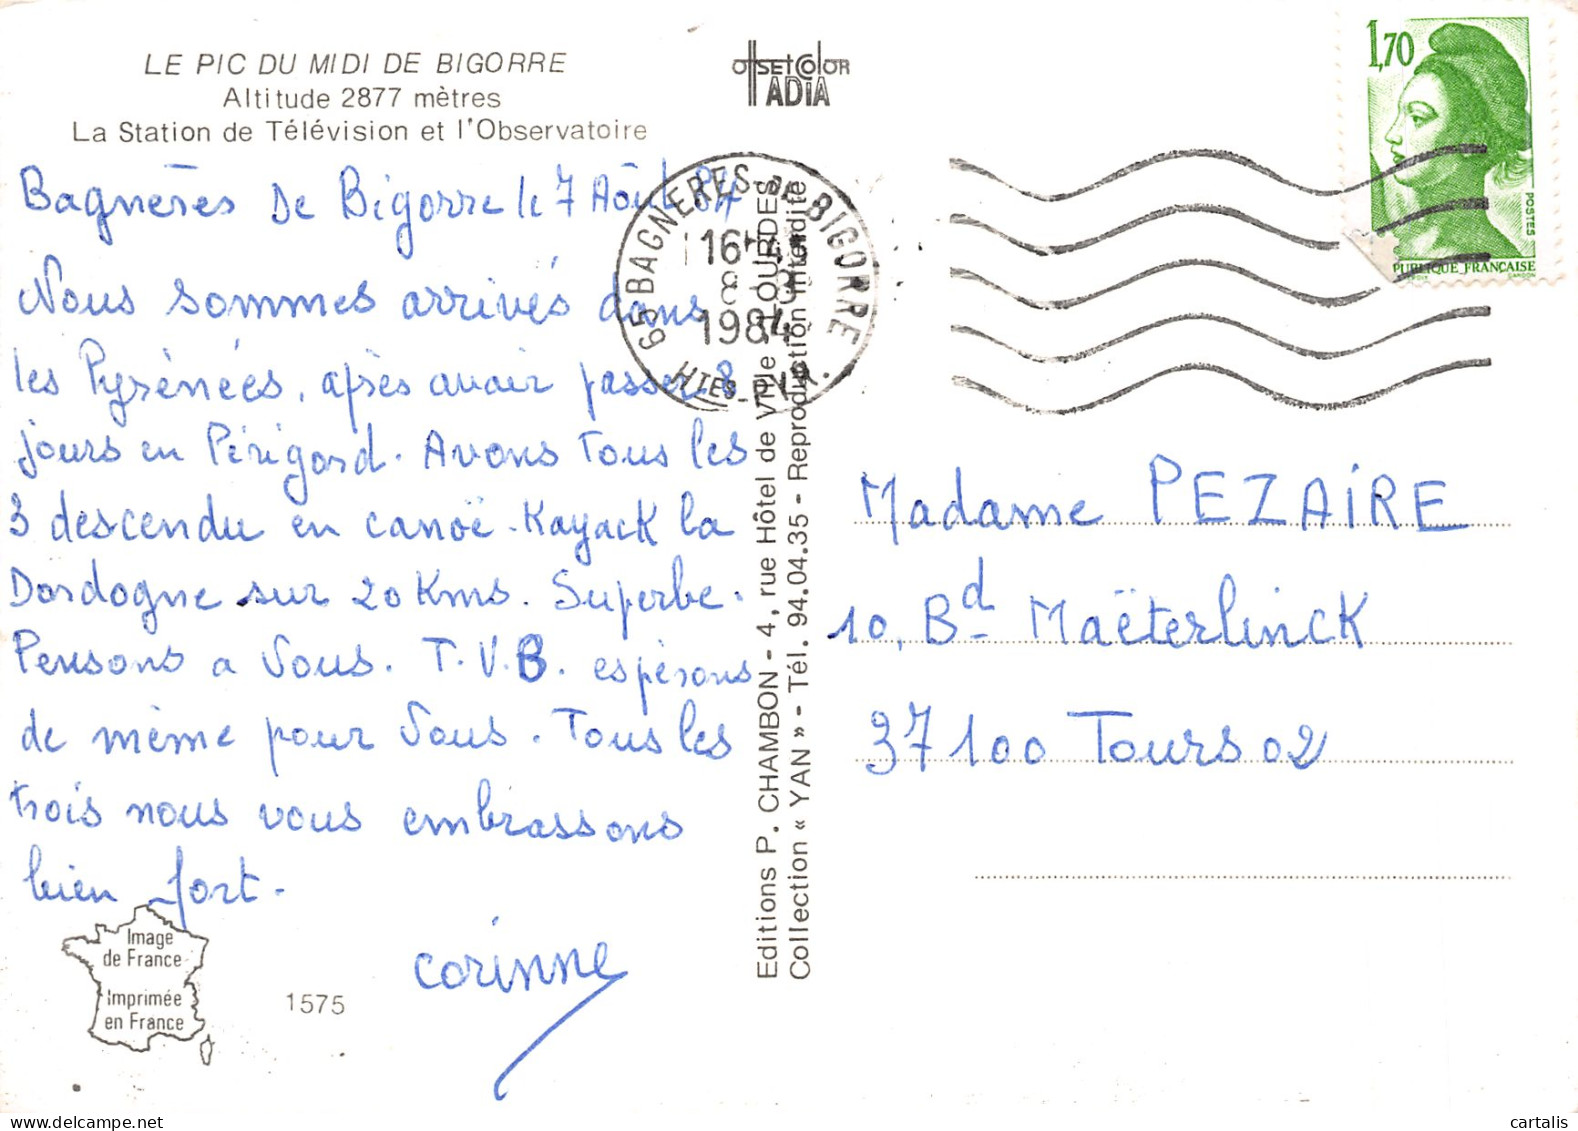 LE PIC DU MIDI DE BIGORRE
Altitude 2877 mètres
La Station de Télévision et l'Observatoire
Bagnères De Bigorre le 7 Août 84
Nous sommes arrivés dans
les Pyrénées, après avoir passer 8
jours en Périgord. Avons Tous les
3 descendu en canoë-Kayack la
Dordogne sur 20 Kms. Superbe.
Pensons a Vous. T.V.B. espérons
de même pour Vous. Tous les
trois nous vous embrassons
bien fort.
corinne
Image
de France
Imprimée
en France
1575
offset color
IADIA
65 BAGNERES DE BIGORRE
16H45
8
1984
HTES-PYR.
Editions P. CHAMBON - 4, rue Hôtel de Ville LOURDES
Collection « YAN » - Tél. 94.04.35 - Reproduction interdite
1,70
POSTES
REPUBLIQUE FRANÇAISE
GANDON
Madame PEZAIRE
10, Bd Maëterlinck
37100 Tours 02
cartalis
delcampe.net